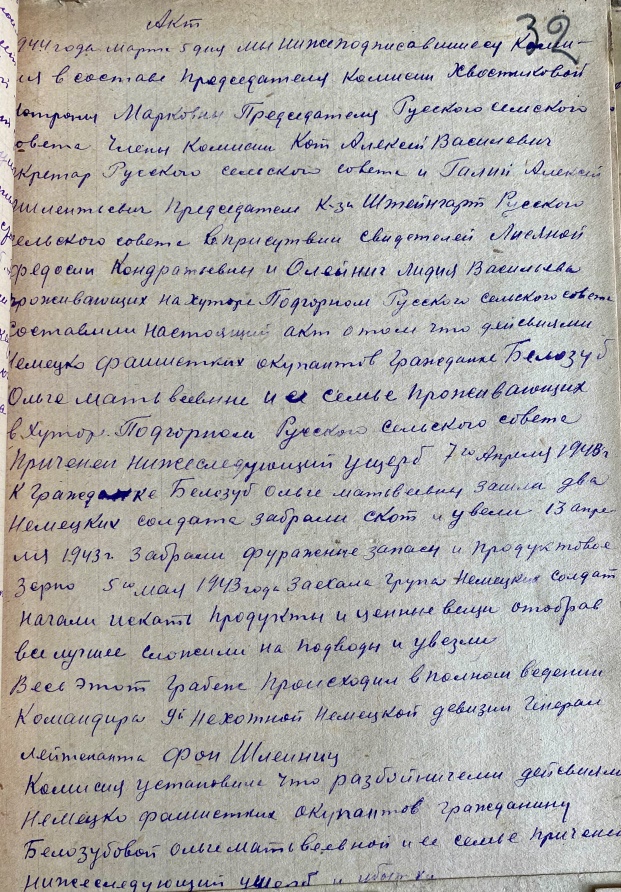 Акт
32
1944 года марта 5 дня мы нижеподписавшиеся Коми-
ия в составе Председателя Комисии Хвостиковой
Марковны Председателя Русского семского
овета Члены Комисии Кот Алексей Василевич
кретар Русского сельского совета и Галий Алексей
Председатель К-за Штейнгарт Русского
сельского совета в присутвии свидетелей Лысяной
федосии Кондратьевны и Олейниг Лидия Васильева
проживающих на хуторе Подгорном Русского сельского совета
составили настоящий акт о том что действиями
Немецко фашистких окупантов гражданке Белозуб
Ольге матьвеевине и ее семье проживающих
в Хутор. Подгорном Русского сельского совета
Приченен нижеследующий ущерб 7го Апреля 1943 г
к гражданке Белозуб Ольге матьвеевны зашла два
Немецких солдата забрали скот и увели 13 апре
ля 1943 г. Забрали фуражные запасы и продуктовое
зерно 5го мая 1943 года Заехала група Немецких солдат
начали искать продукты и ценные вещи отобрав
все лучшее сложили на подводы и увезли
Весь этот грабеж происходил в полном ведении
Командира 9й Пехотной Немецкой девизии Генерал
лейтенанта фон Шлейниц
Комисия установила что разбойничеми действиями
Немецко фашистких окупантов гражданину
Белозубовой ольге матьвеевной и ее семье приченен
нижеследующий ущерб и убытки